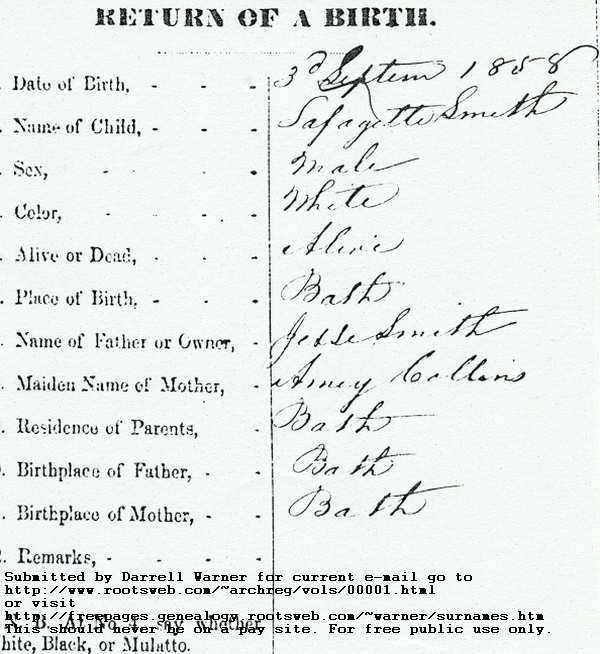 RETURN OF A BIRTH.
. Date of Birth, - - - 3d Septem 1858
. Name of Child, - - - Lafayette Smith
. Sex, - - - - Male
. Color, - - - - White
. Alive or Dead, - - - Alive
. Place of Birth, - - - Bath
. Name of Father or Owner, - Jesse Smith
. Maiden Name of Mother, - Amey Collins
. Residence of Parents, - Bath
. Birthplace of Father, - - Bath
. Birthplace of Mother, - - Bath
. Remarks, - - - -
Submitted by Darrell Warner for current e-mail go to
http://www.rootsweb.com/~archreg/vols/00001.html
or visit
http://freepages.genealogy.rootsweb.com/~warner/surnames.htm
N. B. At No. 4, say whether
This should never be on a pay site. For free public use only.
hite, Black, or Mulatto.